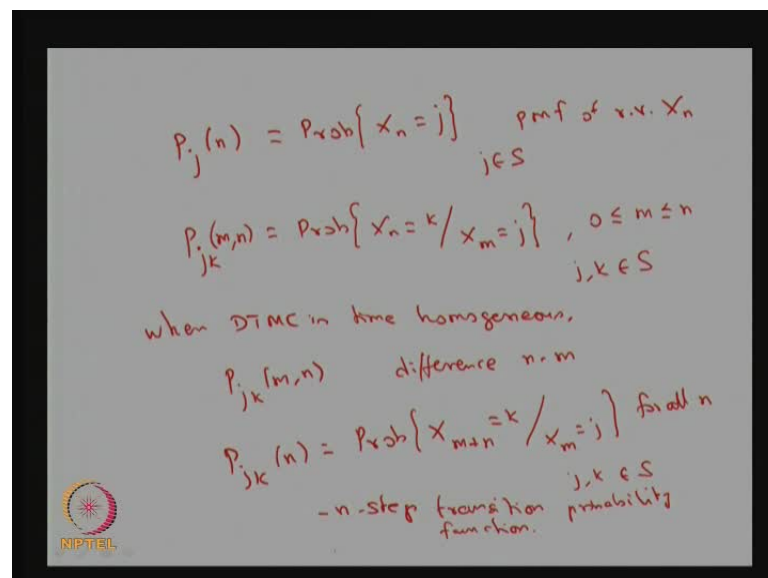 P_j(n) = Prob{X_n = j}    pmf of r.v. X_n
j ∈ S
P_jk(m,n) = Prob{X_n = k / X_m = j} , 0 ≤ m ≤ n
j, k ∈ S
when DTMC is time homogeneous,
P_jk(m,n)    difference n-m
P_jk(n) = Prob{X_m+n = k / X_m = j} for all n
j, k ∈ S
- n-step transition probability
function.
NPTEL